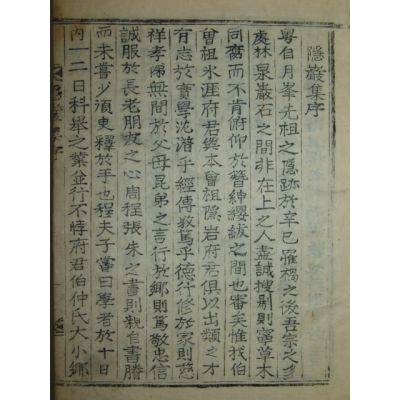 隱巖集序
粤自月峯先祖之隱跡於辛巳罹禍之後吾宗之多
處林泉巖石之間非在上之人盡誠搜剔則寧草木
同腐而不肯俯仰於簪紳纓紱之間也審矣惟我伯
曾祖氷涯府君與本曾祖隱岩府君俱以出類之才
有志於實學沈潛乎經傳敦篤乎德行修於家則慈
祥孝悌無間於父母昆弟之言行於鄉則篤敬忠信
誠服於長老朋友之心周程張朱之書則親自書謄
而未嘗少須臾釋於手也程夫子嘗曰學者於十日
內一二日科舉之業並行不悖府君伯仲氏大小鄉